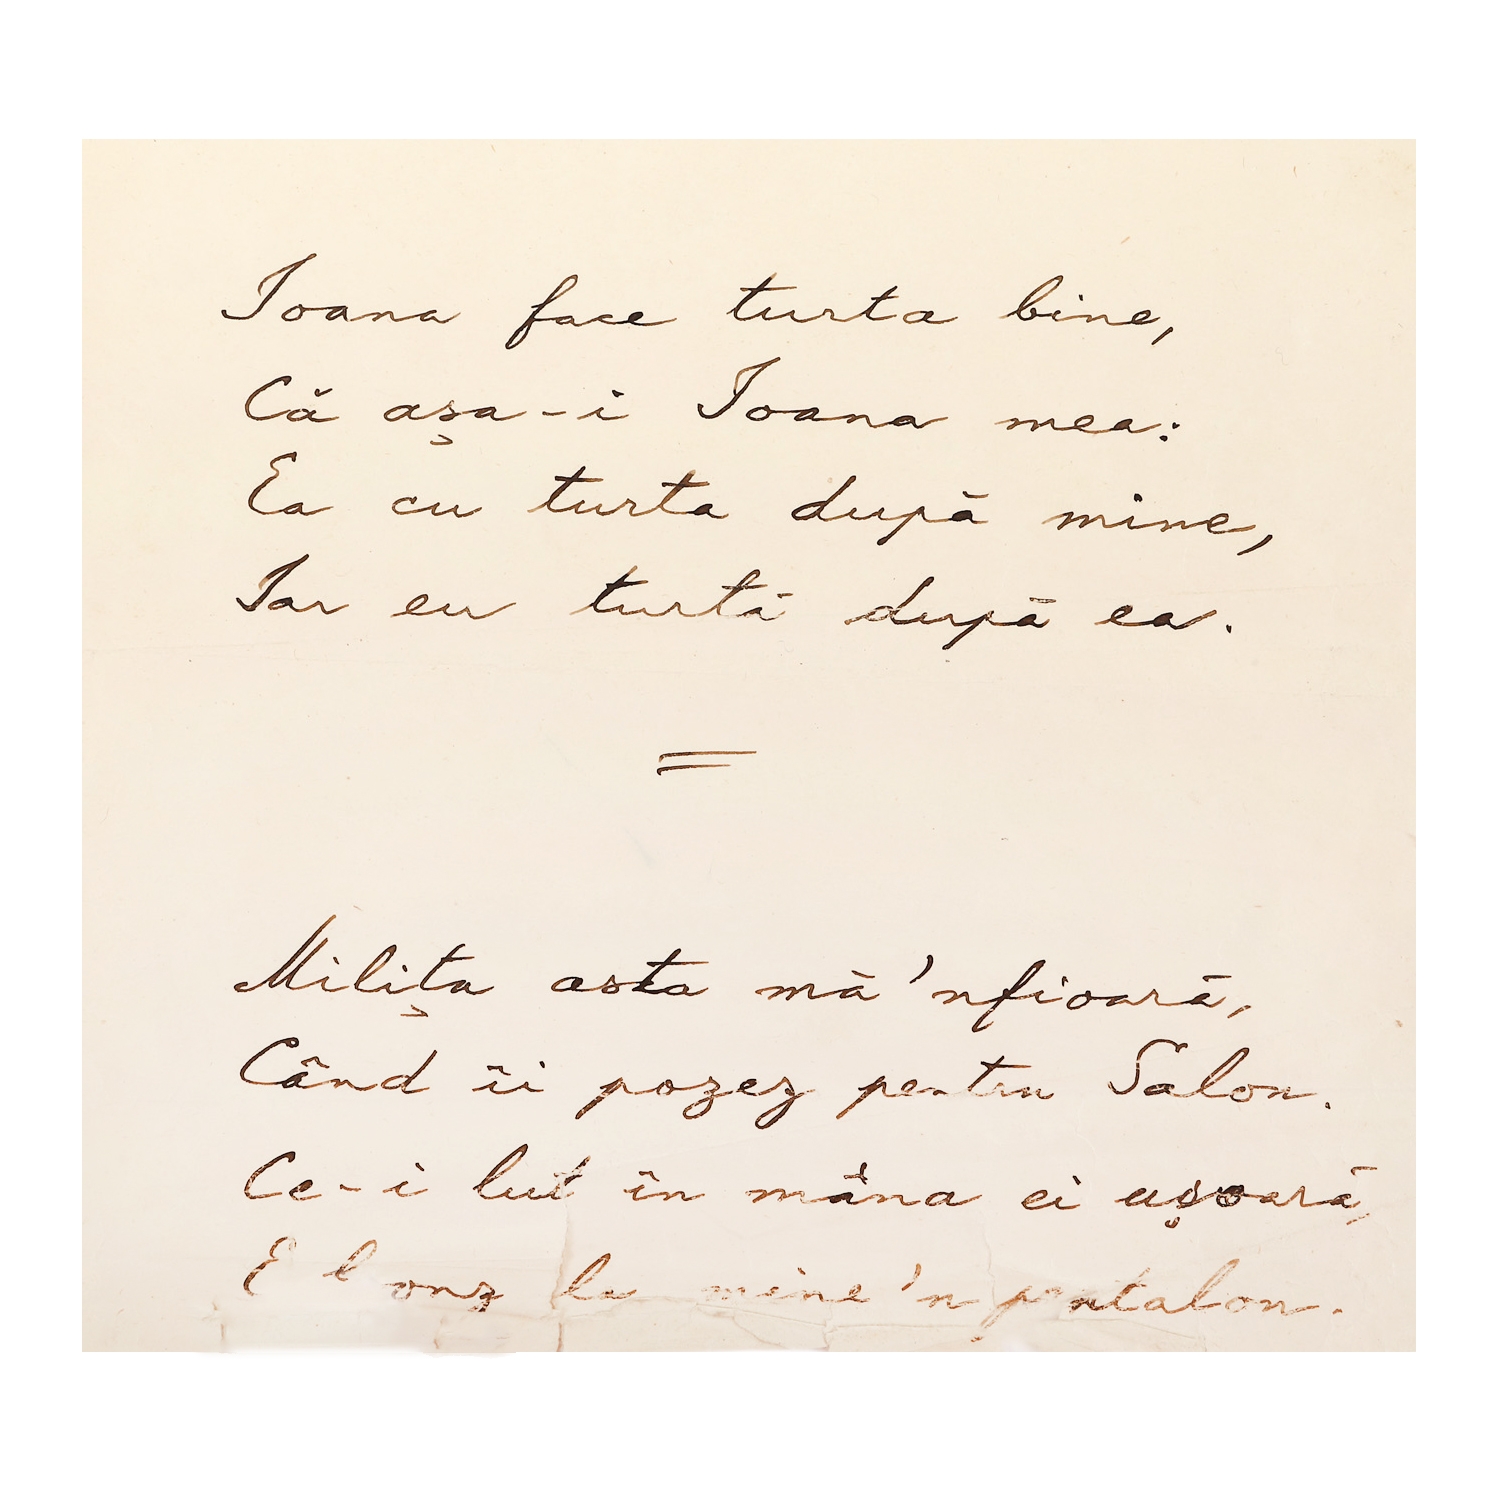 Ioana face turta bine,
Că așa-i Ioana mea:
Ea cu turta după mine,
Iar eu turtă după ea.
=
Milița asta mă 'nfioară,
Când îi pozez pentru Salon.
Ce-i lut în mâna ei ușoară,
E bronz la mine 'n pantalon.